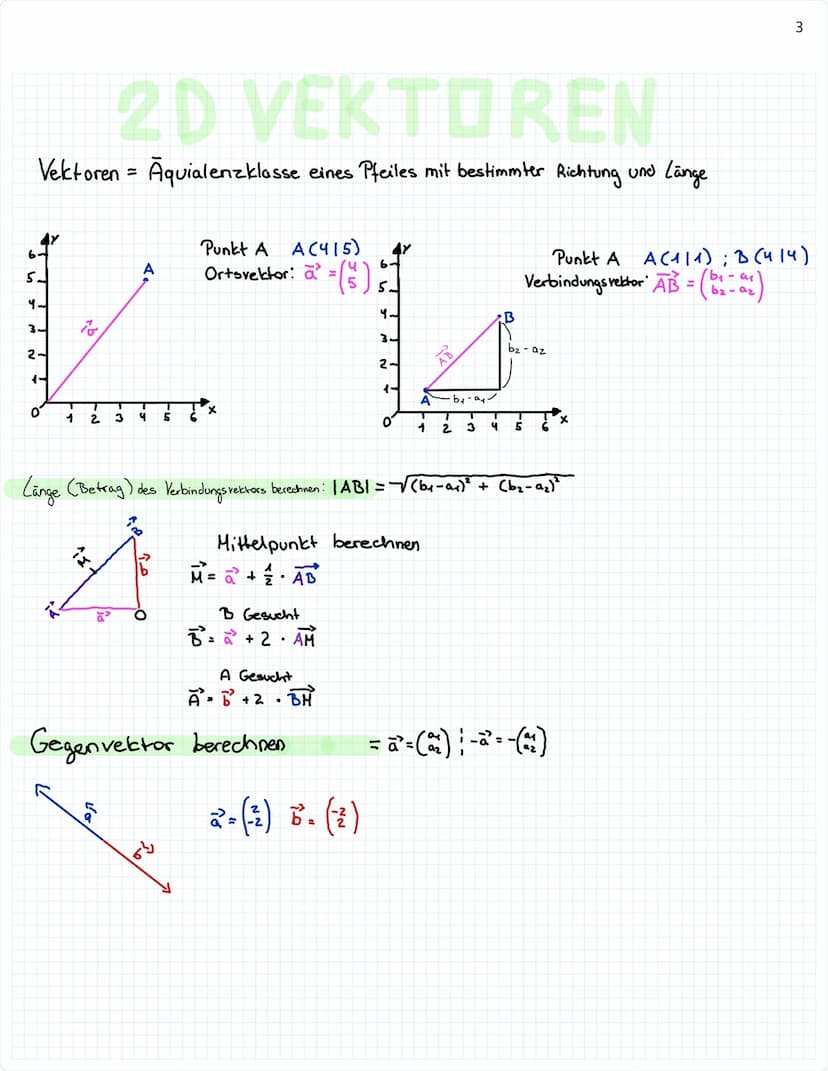 3
2D VEKTOREN
Vektoren = Äquialenzklasse eines Pfeiles mit bestimmter Richtung und Länge
Y
6
5
4
3
2
1
0
1 2 3 4 5 6 x
A
a⃗
Punkt A A(4|5)
Ortsvektor: a⃗ = (4 5)
Y
6
5
4
3
2
1
0
1 2 3 4 5 6 x
A
B
AB⃗
b₂ - a₂
b₁ - a₁
Punkt A A(1|1) ; B(4|4)
Verbindungsvektor: AB⃗ = (b₁ - a₁ b₂ - a₂)
Länge (Betrag) des Verbindungsvektors berechnen: |AB| = √(b₁-a₁)² + (b₂-a₂)²
B⃗
M⃗
b⃗
A⃗
a⃗
O
Mittelpunkt berechnen
M⃗ = a⃗ + 1/2 · AB⃗
B Gesucht
B⃗ = a⃗ + 2 · AM⃗
A Gesucht
A⃗ = b⃗ + 2 · BM⃗
Gegenvektor berechnen = a⃗ = (a₁ a₂) ¦ -a⃗ = -(a₁ a₂)
a⃗
b⃗
a⃗ = (2 -2) b⃗ = (-2 2)